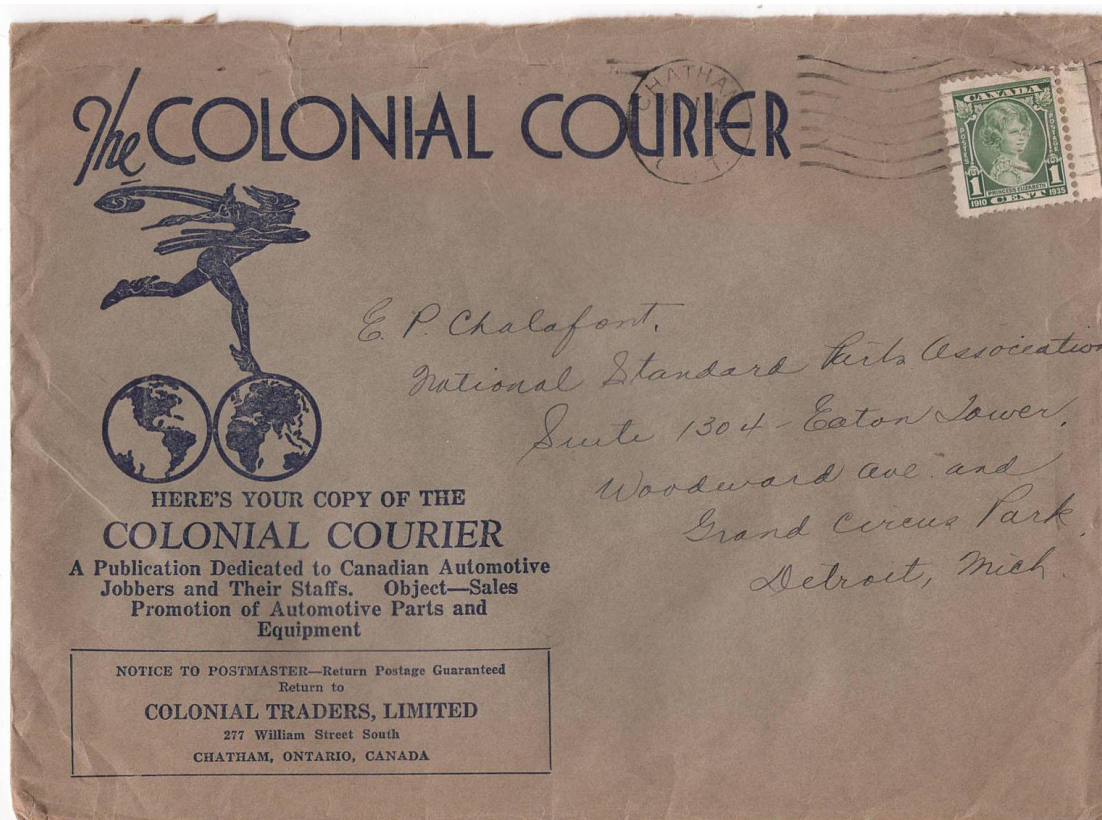 The COLONIAL COURIER
CHATHAM
CANADA
POSTES
POSTAGE
1 1
PRINCESS ELIZABETH
1910 CENT 1935
E. P. Chalafont.
National Standard Parts Association
Suite 1304 - Eaton Tower.
Woodward Ave. and
Grand Circus Park.
Detroit, Mich.
HERE'S YOUR COPY OF THE
COLONIAL COURIER
A Publication Dedicated to Canadian Automotive
Jobbers and Their Staffs. Object—Sales
Promotion of Automotive Parts and
Equipment
NOTICE TO POSTMASTER—Return Postage Guaranteed
Return to
COLONIAL TRADERS, LIMITED
277 William Street South
CHATHAM, ONTARIO, CANADA